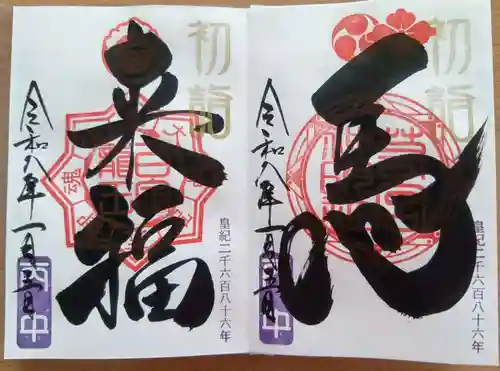 初詣
来福
令和八年一月五日
皇紀二千六百八十六年
丙午
魂
初詣
馬
令和八年一月五日
皇紀二千六百八十六年
丙午